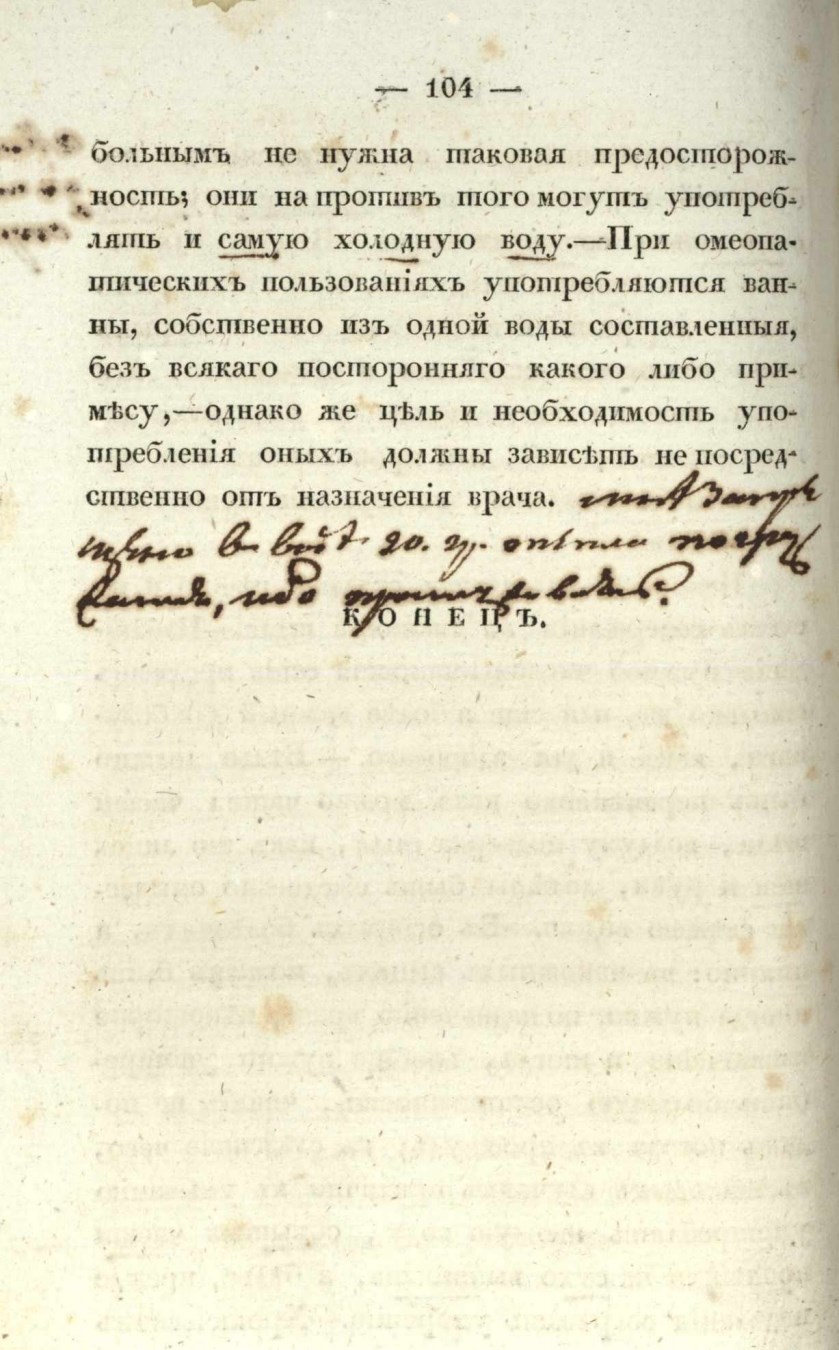 — 104 —
больнымъ не нужна таковая предосторож-
ность; они на противъ того могутъ употреб-
лять и самую холодную воду.—При омеопа-
тическихъ пользованіяхъ употребляются ван-
ны, собственно изъ одной воды составленныя,
безъ всякаго посторонняго какого либо при-
мѣсу,—однако же цѣль и необходимость упо-
требленія оныхъ должны зависѣть не посред-
ственно отъ назначенія врача.
в водѣ 20. гр.
КОНЕЦЪ.